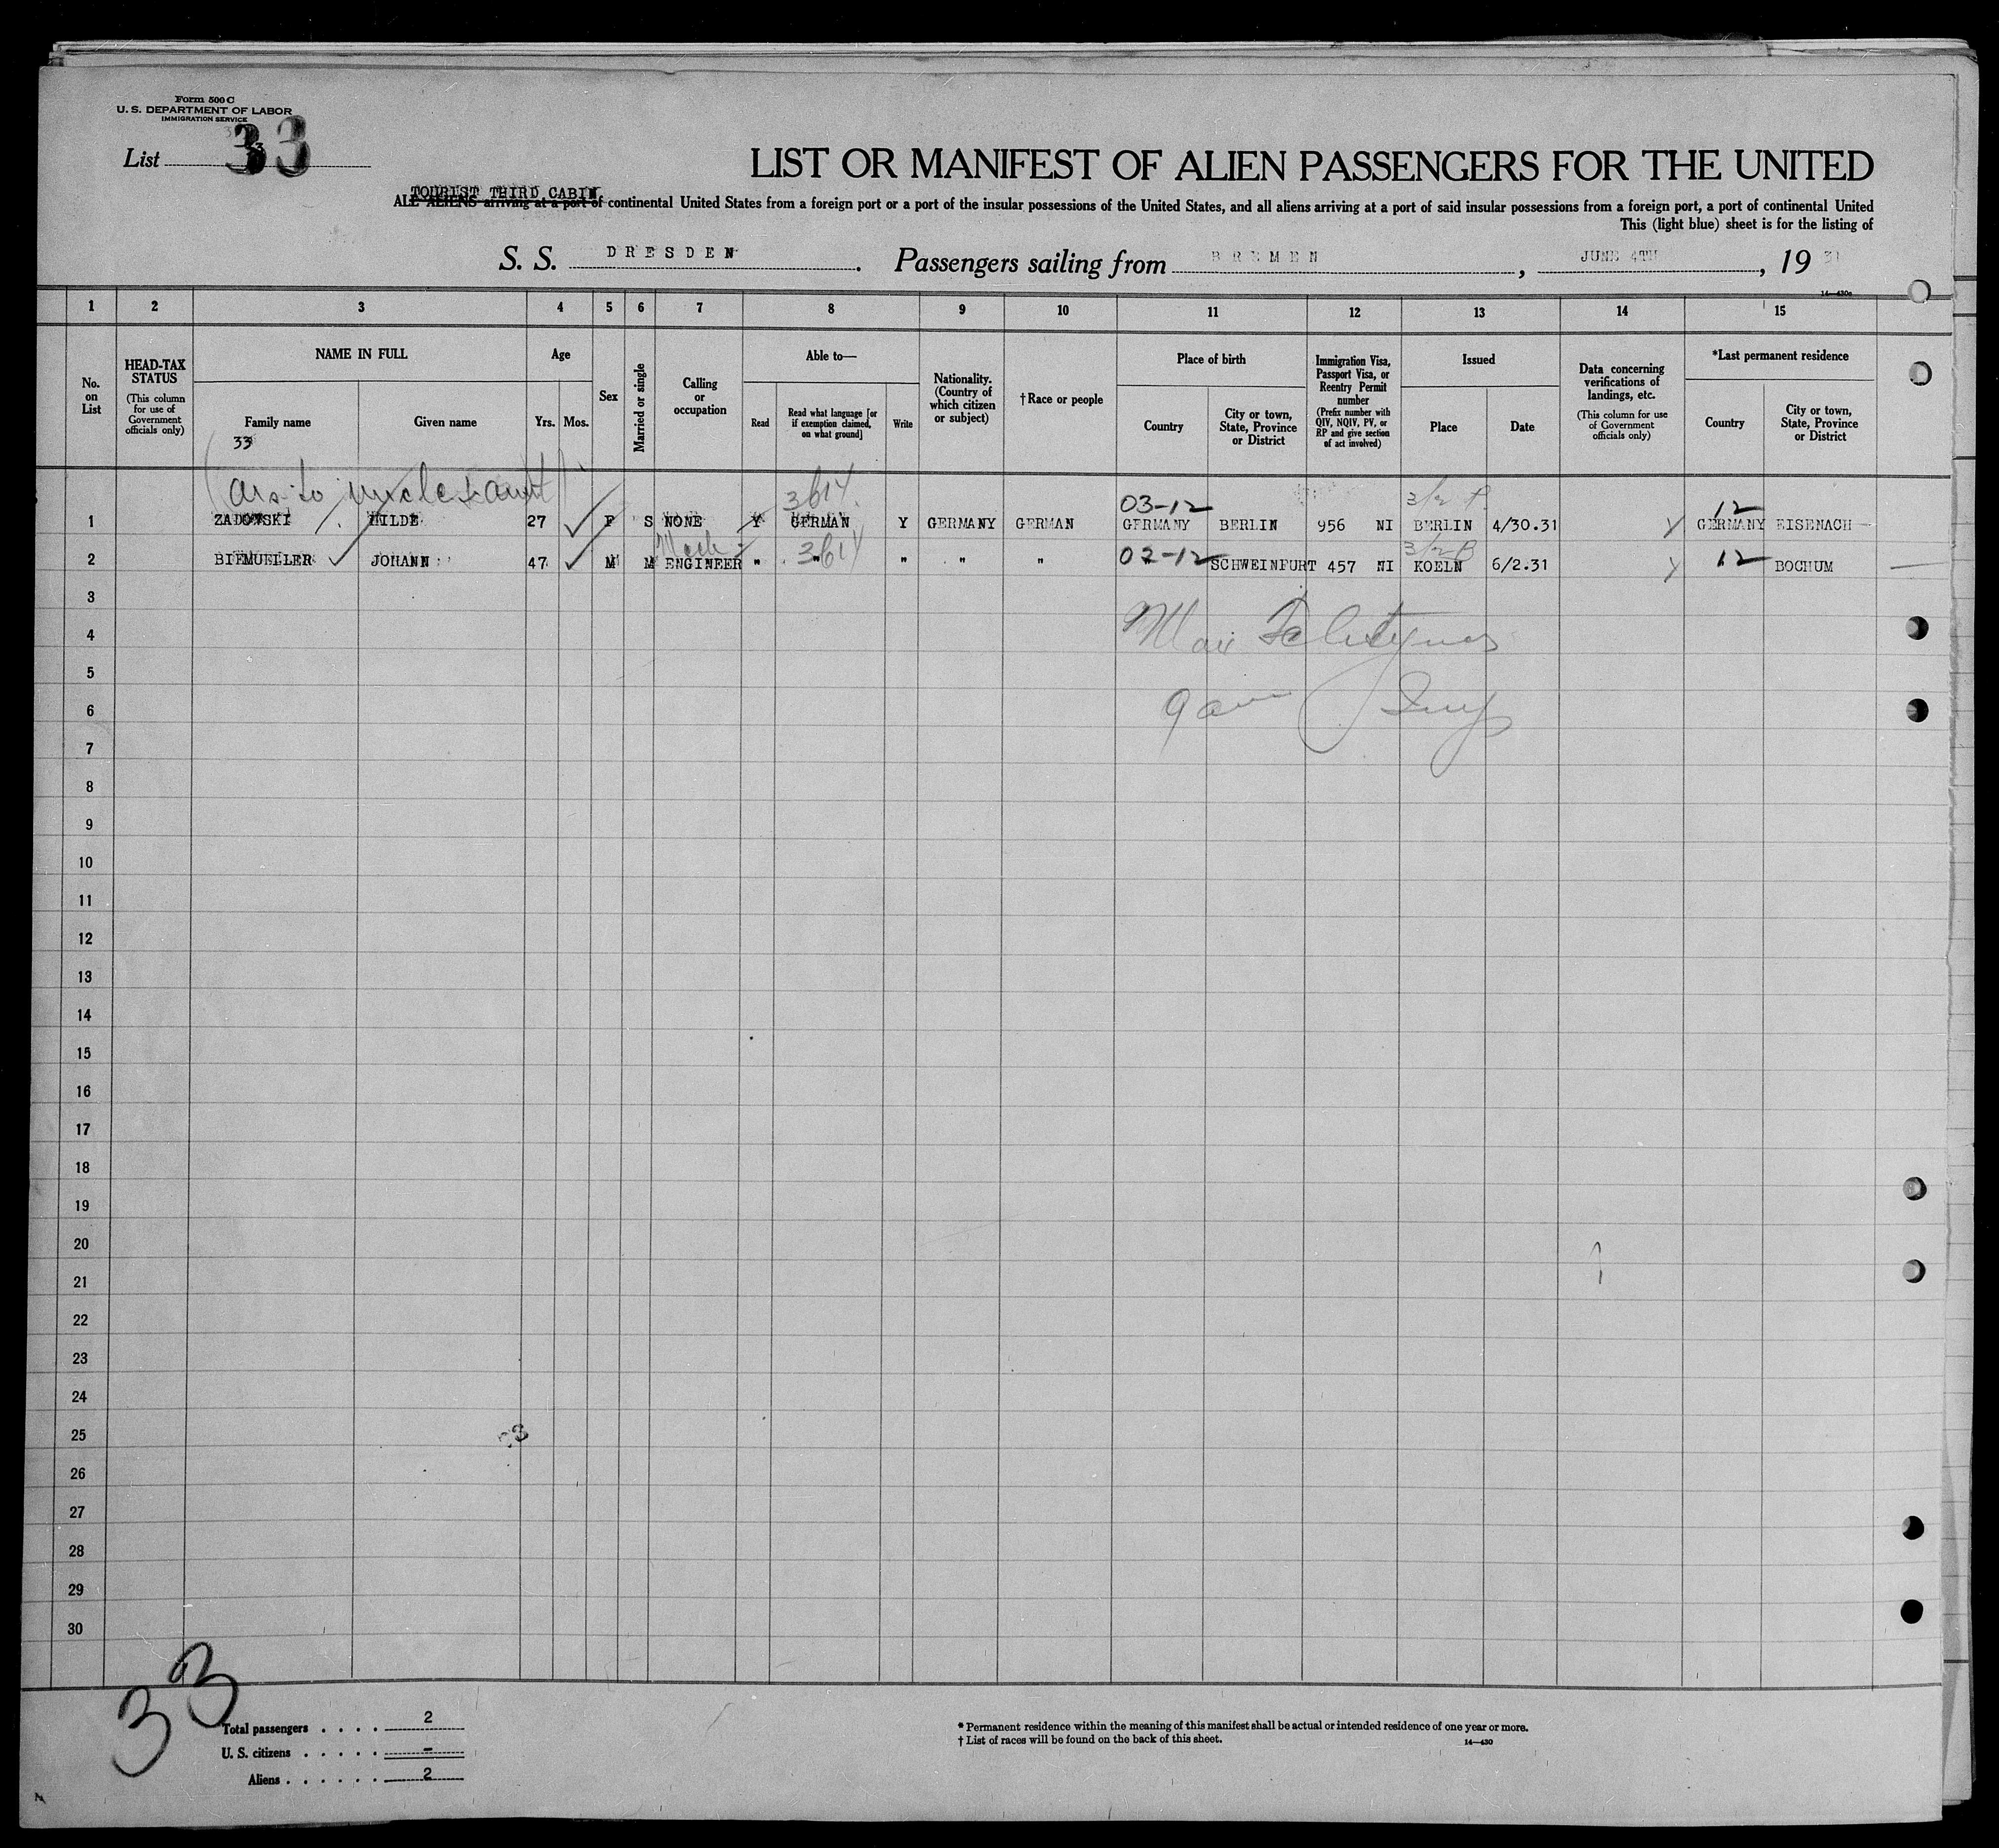 Form 500 C
U. S. DEPARTMENT OF LABOR
IMMIGRATION SERVICE
List 33
LIST OR MANIFEST OF ALIEN PASSENGERS FOR THE UNITED
TOURIST THIRD CABIN
ALL ALIENS arriving at a port of continental United States from a foreign port or a port of the insular possessions of the United States, and all aliens arriving at a port of said insular possessions from a foreign port, a port of continental United
This (light blue) sheet is for the listing of
S. S. DRESDEN. Passengers sailing from BREMEN, JUNE 4TH, 1931
14—430a
1 2 3 4 5 6 7 8 9 10 11 12 13 14 15
No. on List
HEAD-TAX STATUS (This column for use of Government officials only)
NAME IN FULL
Family name
Given name
33
Age
Yrs. Mos.
Sex
Married or single
Calling or occupation
Able to—
Read
Read what language [or if exemption claimed, on what ground]
Write
Nationality. (Country of which citizen or subject)
†Race or people
Place of birth
Country
City or town, State, Province or District
Immigration Visa, Passport Visa, or Reentry Permit number (Prefix number with QIV, NQIV, PV, or RP and give section of act involved)
Issued
Place
Date
Data concerning verifications of landings, etc. (This column for use of Government officials only)
*Last permanent residence
Country
City or town, State, Province or District
(as to uncle & aunt) 3614 03-12 3/2 P. 12
1 ZADOWSKI HILDE 27 F S NONE Y GERMAN Y GERMANY GERMAN GERMANY BERLIN 956 NI BERLIN 4/30.31 GERMANY EISENACH
Mech 3614 3/2 P
2 BIEMUELLER JOHANN 47 M M ENGINEER " " " " " 02-12 SCHWEINFURT 457 NI KOELN 6/2.31 12 BOCHUM
3
4
5
6
7
8
9
10
11
12
13
14
15
16
17
18
19
20
21
22
23
24
25
26
27
28
29
30
33
Total passengers . . . . 2
U. S. citizens . . . . . -
Aliens . . . . . . 2
* Permanent residence within the meaning of this manifest shall be actual or intended residence of one year or more.
† List of races will be found on the back of this sheet.
14—430